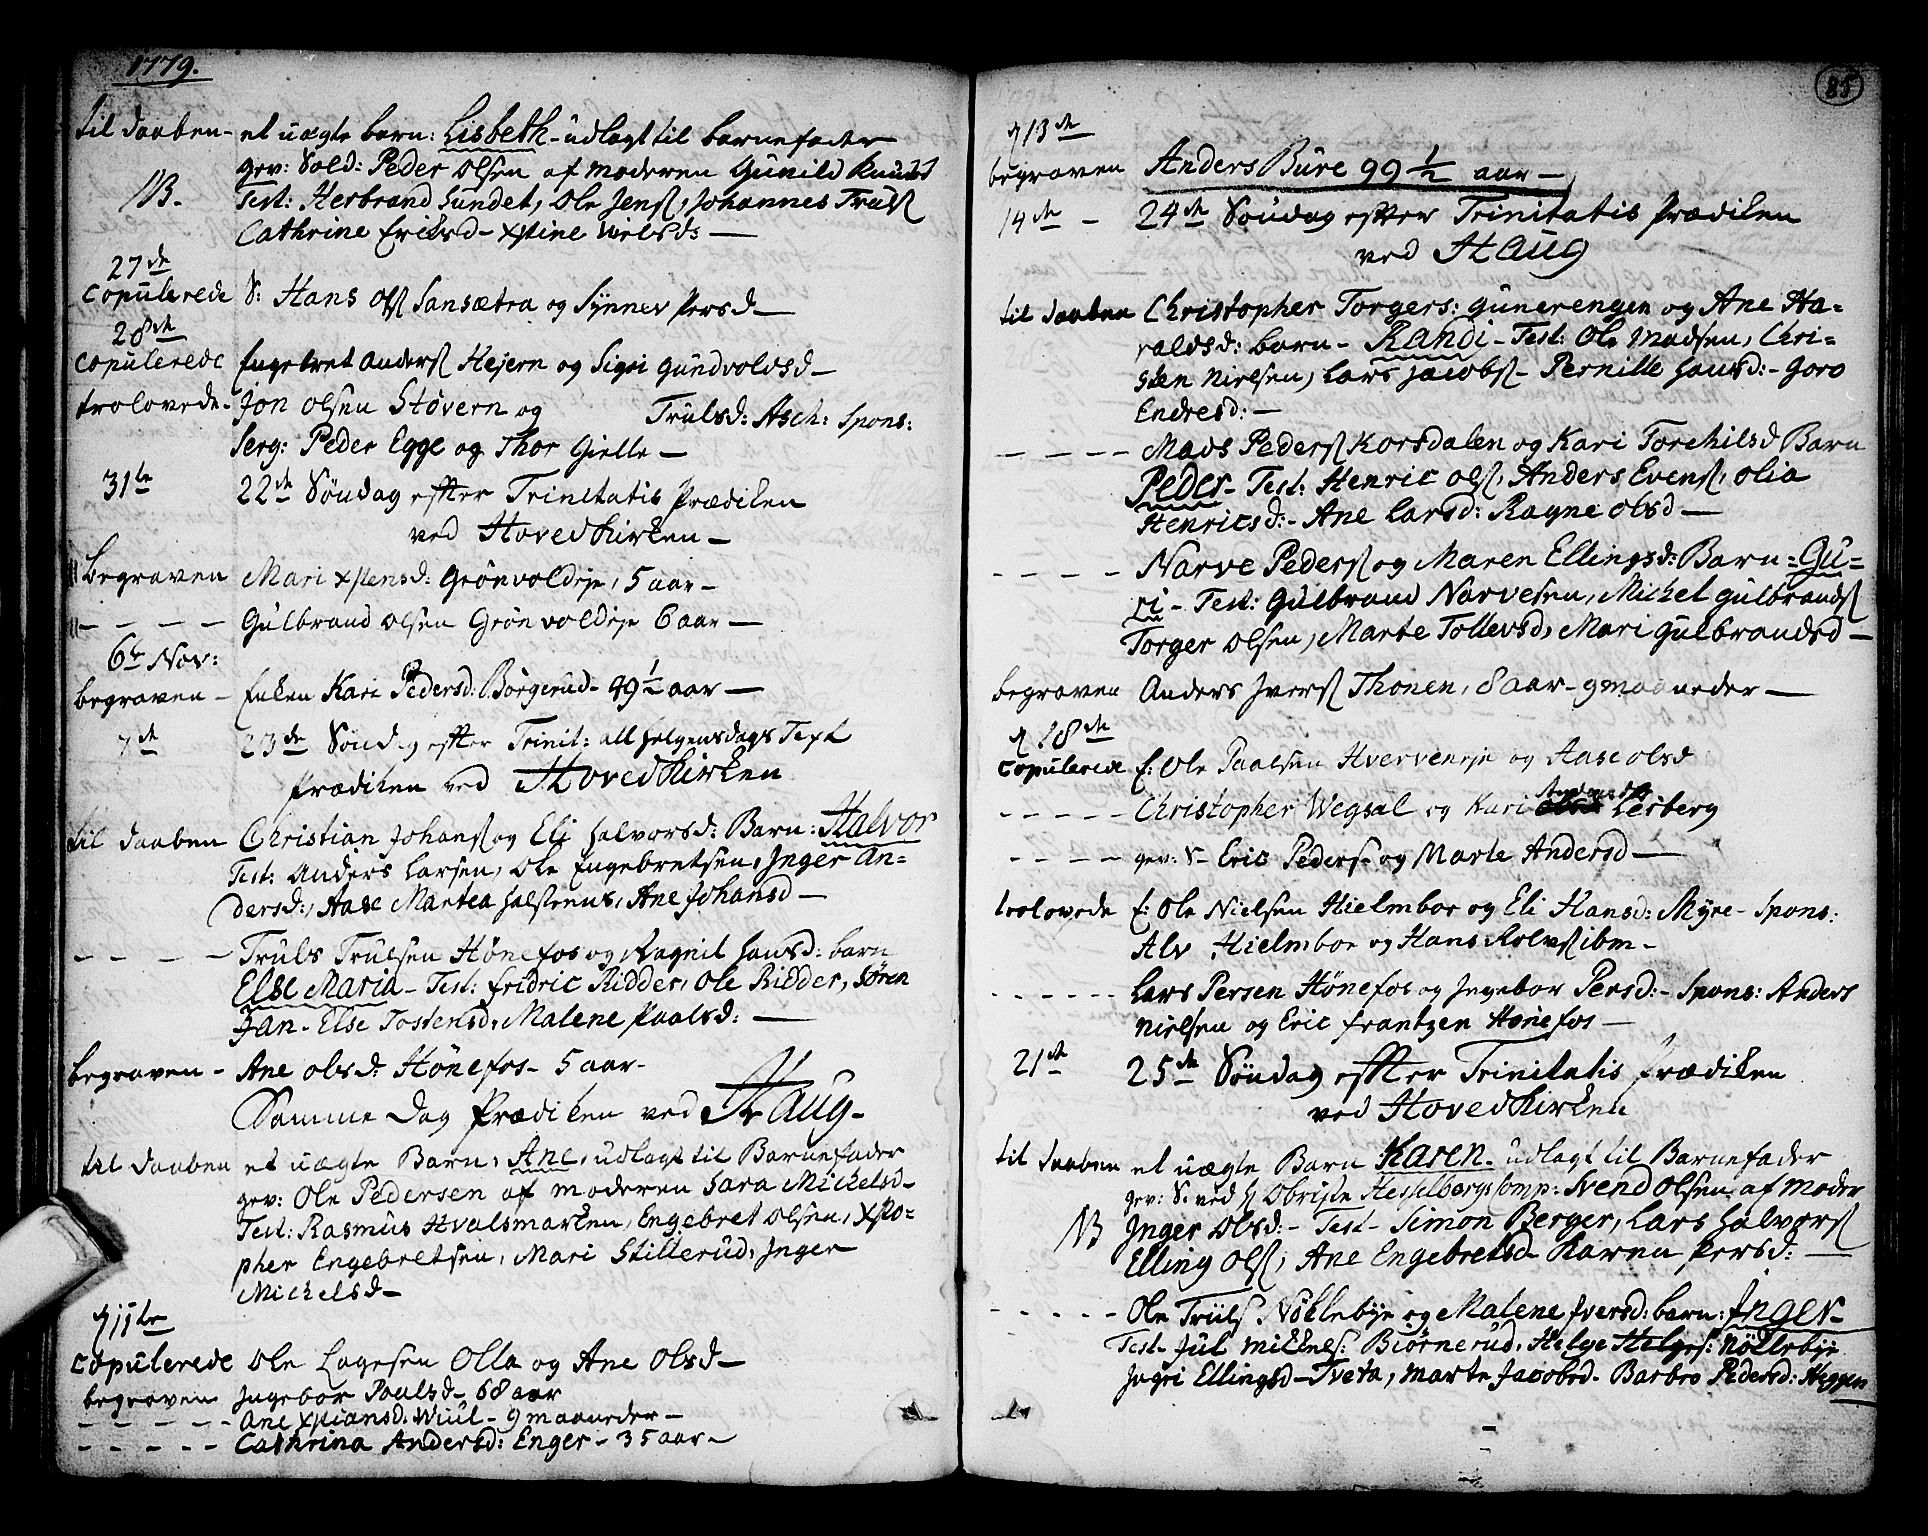 1779.
til daaben – et uægte barn: Lisbeth – udlagt til barnefader
gev: Sold: Peder Olsen af moderen Gunild Knuds
NB. Test: Herbrand Sundet, Ole Jens, Johannes Truls
Cathrine Ericsd – Xstine Nielsd: —
27de
Copulerede S: Hans Ols Sansætra og Synnev Persd —
28de
Copulerede Engebret Anders Hejern og Sigri Gundvoldsd —
trolovede – Jon Olsen Støvern og Trulsd: Asch: Spons:
Serg: Peder Egge og Thor Gielle —
31te 22de Søndag efter Trinitatis Prædiken
ved Hovedkirken —
begraven Mari Xstensd: Grønvoldeje, 5 aar —
– – – – Gulbrand Olsen Grønvoldeje 6 aar —
6te Nov:
begraven – Enken Kari Pedersd: Børgerud – 99½ aar —
7de 23de Søndag efter Trinit: all helgensdags Text
Prædiken ved Hovedkirken
til daaben Christian Johans og Eli Halvorsd: Barn: Halvor
Test: Anders Larsen, Ole Engebretsen, Inger An=
dersd:, Aase Martea, Ane Johansd —
– – – – Truls Trulsen Hønefos og Ragnil Hansd: barn
Else Maria – Test: Fridric Ridder, Ole Ridder, Søren
Jan – Else Tostensd, Malene Paalsd: —
begraven – Ane Olsd: Hønefos – 5 aar –
Samme Dag Prædiken ved Haug –
til daaben et uægte Barn, Ane, udlagt til Barnefader
gev: Ole Pedersen af moderen Sara Michelsd –
Test: Rasmus Hvalsmarken, Engebret Olsen, Xsto=
pher Engebretsen, Mari Stillerud, Inger
Michelsd –
d 11te
Copulerede Ole Lagesen Olla og Ane Olsd —
begraven Ingebor Paalsd – 68 aar
– – – – – Ane Xstiansd. Wiul – 9 maaneder —
– – – – – Cathrina Andersd: Enger – 35 aar —
85
d 13de
begraven Anders Bure 99½ aar —
14de – 24de Søndag efter Trinitatis Prædiken
ved Haug
til daaben Christopher Torgers: Gunerengen og Ane Ha=
raldsd: barn – Randi – Test: Ole Madsen, Chri=
sten Nielsen, Lars Jacobs – Pernille Hansd: – Goro
Endresd: —
– – – – Mads Peders Korsdalen og Kari Torchilsd Barn
Peder – Test: Henric Ols, Anders Evens, Olia
Henricsd: – Ane Larsd: Ragne Olsd —
– – – – Narve Peders og Maren Ellingsd: Barn = Gu=
ri – Test: Gulbrand Narvesen, Michel Gulbrands
Torger Olsen, Marte Tollevsd, Mari Gulbrandsd —
begraven Anders Ivers Thonen, 8 aar – 9 maaneder —
d 18de
Copulerede E: Ole Paalsen Hverveneje og Aase Olsd
– – – – – Christopher Wegsal og Kari Andersd Lesberg
– – – – gev: S – Eric Peders – og Marte Andersd —
trolovede E: Ole Nielsen Hielmboe og Eli Hansd: Myre – Spons:
Alv Hielmboe og Hans Rolvs ibm –
– – – – – – Lars Persen Hønefos og Ingebor Persd: – Spons: Anders
Nielsen og Eric Frantzen Hønefos —
21de 25de Søndag efter Trinitatis Prædiken
ved Hovedkirken
til daaben et uægte Barn Karen – udlagt til Barnefader
gev: S. ved H Obriste Hesselbergs Comp: Svend Olsen, af Moder
NB Inger Olsd: – Test – Simon Berger, Lars Halvors
Elling Ols, Ane Engebretsd – Karen Persd: —
– – – – – Ole Truls. Nøklebye og Malene Iversd: barn: Inger –
Test – Jul Mikkels: Biørnerud, Helge Helges: Nøklebye
Ingri Ellingsd – Tveta, Marte Jacobsd – Barbro Pedersd: Heggen